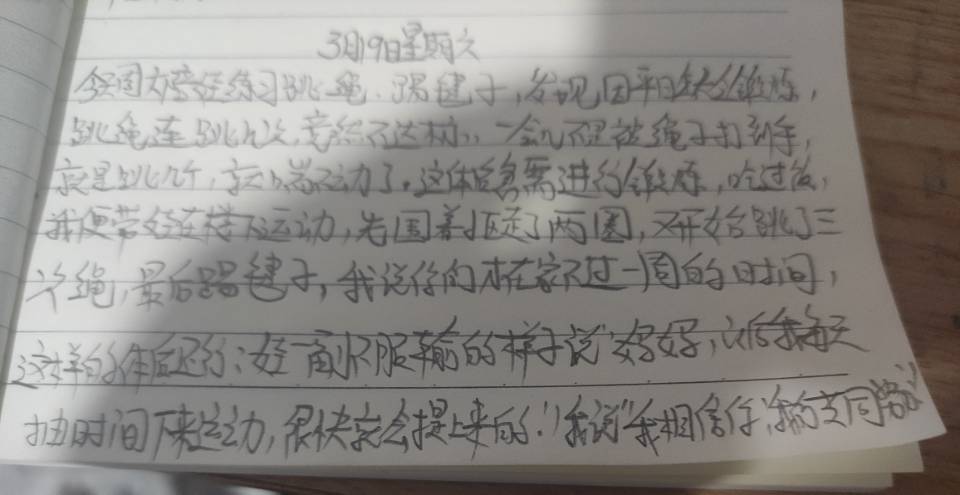 3月19日星期六
今天周六陪娃练习跳绳、踢毽子,发现因平日缺乏锻炼,
跳绳连跳几次,竟然不达标,一会儿不是被绳子打到手,
就是跳几个,就喘不动了。这体质急需进行锻炼,吃过饭,
我便带娃在楼下运动,先围着小区走了两圈,又开始跳了三
个绳,最后踢毽子,我说你们才在家不过一周的时间,
这样的体质还行;娃一副不服输的样子说"妈妈,以后我每天
抽时间下来运动,很快就会提上来的!"我说"我相信你,我们支同学